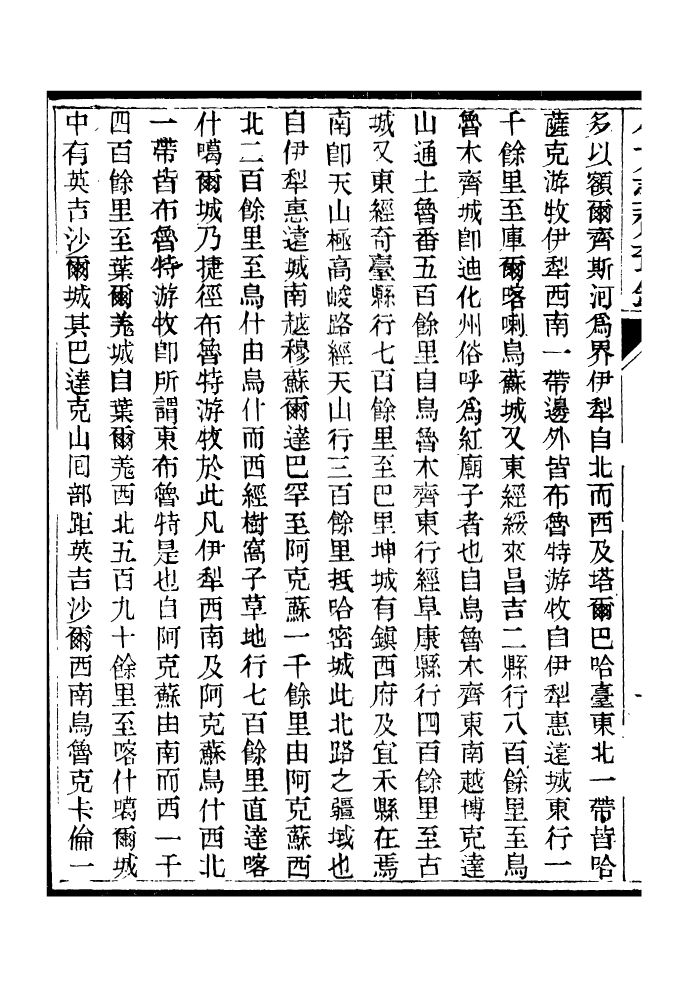 多以額爾齊斯河爲界伊犁自北而西及塔爾巴哈臺東北一帶皆哈
薩克游牧伊犁西南一帶邊外皆布魯特游牧自伊犁惠遠城東行一
千餘里至庫爾喀喇烏蘇城又東經綏來昌吉二縣行八百餘里至烏
魯木齊城卽迪化州俗呼爲紅廟子者也自烏魯木齊東南越博克達
山通土魯番五百餘里自烏魯木齊東行經阜康縣行四百餘里至古
城又東經奇臺縣行七百餘里至巴里坤城有鎭西府及宜禾縣在焉
南卽天山極高峻路經天山行三百餘里抵哈密城此北路之疆域也
自伊犁惠遠城南越穆蘇爾達巴罕至阿克蘇一千餘里由阿克蘇西
北二百餘里至烏什由烏什而西經樹窩子草地行七百餘里直達喀
什噶爾城乃捷徑布魯特游牧於此凡伊犁西南及阿克蘇烏什西北
一帶皆布魯特游牧卽所謂東布魯特是也自阿克蘇由南而西一千
四百餘里至葉爾羌城自葉爾羌西北五百九十餘里至喀什噶爾城
中有英吉沙爾城其巴達克山回部距英吉沙爾西南烏魯克卡倫一